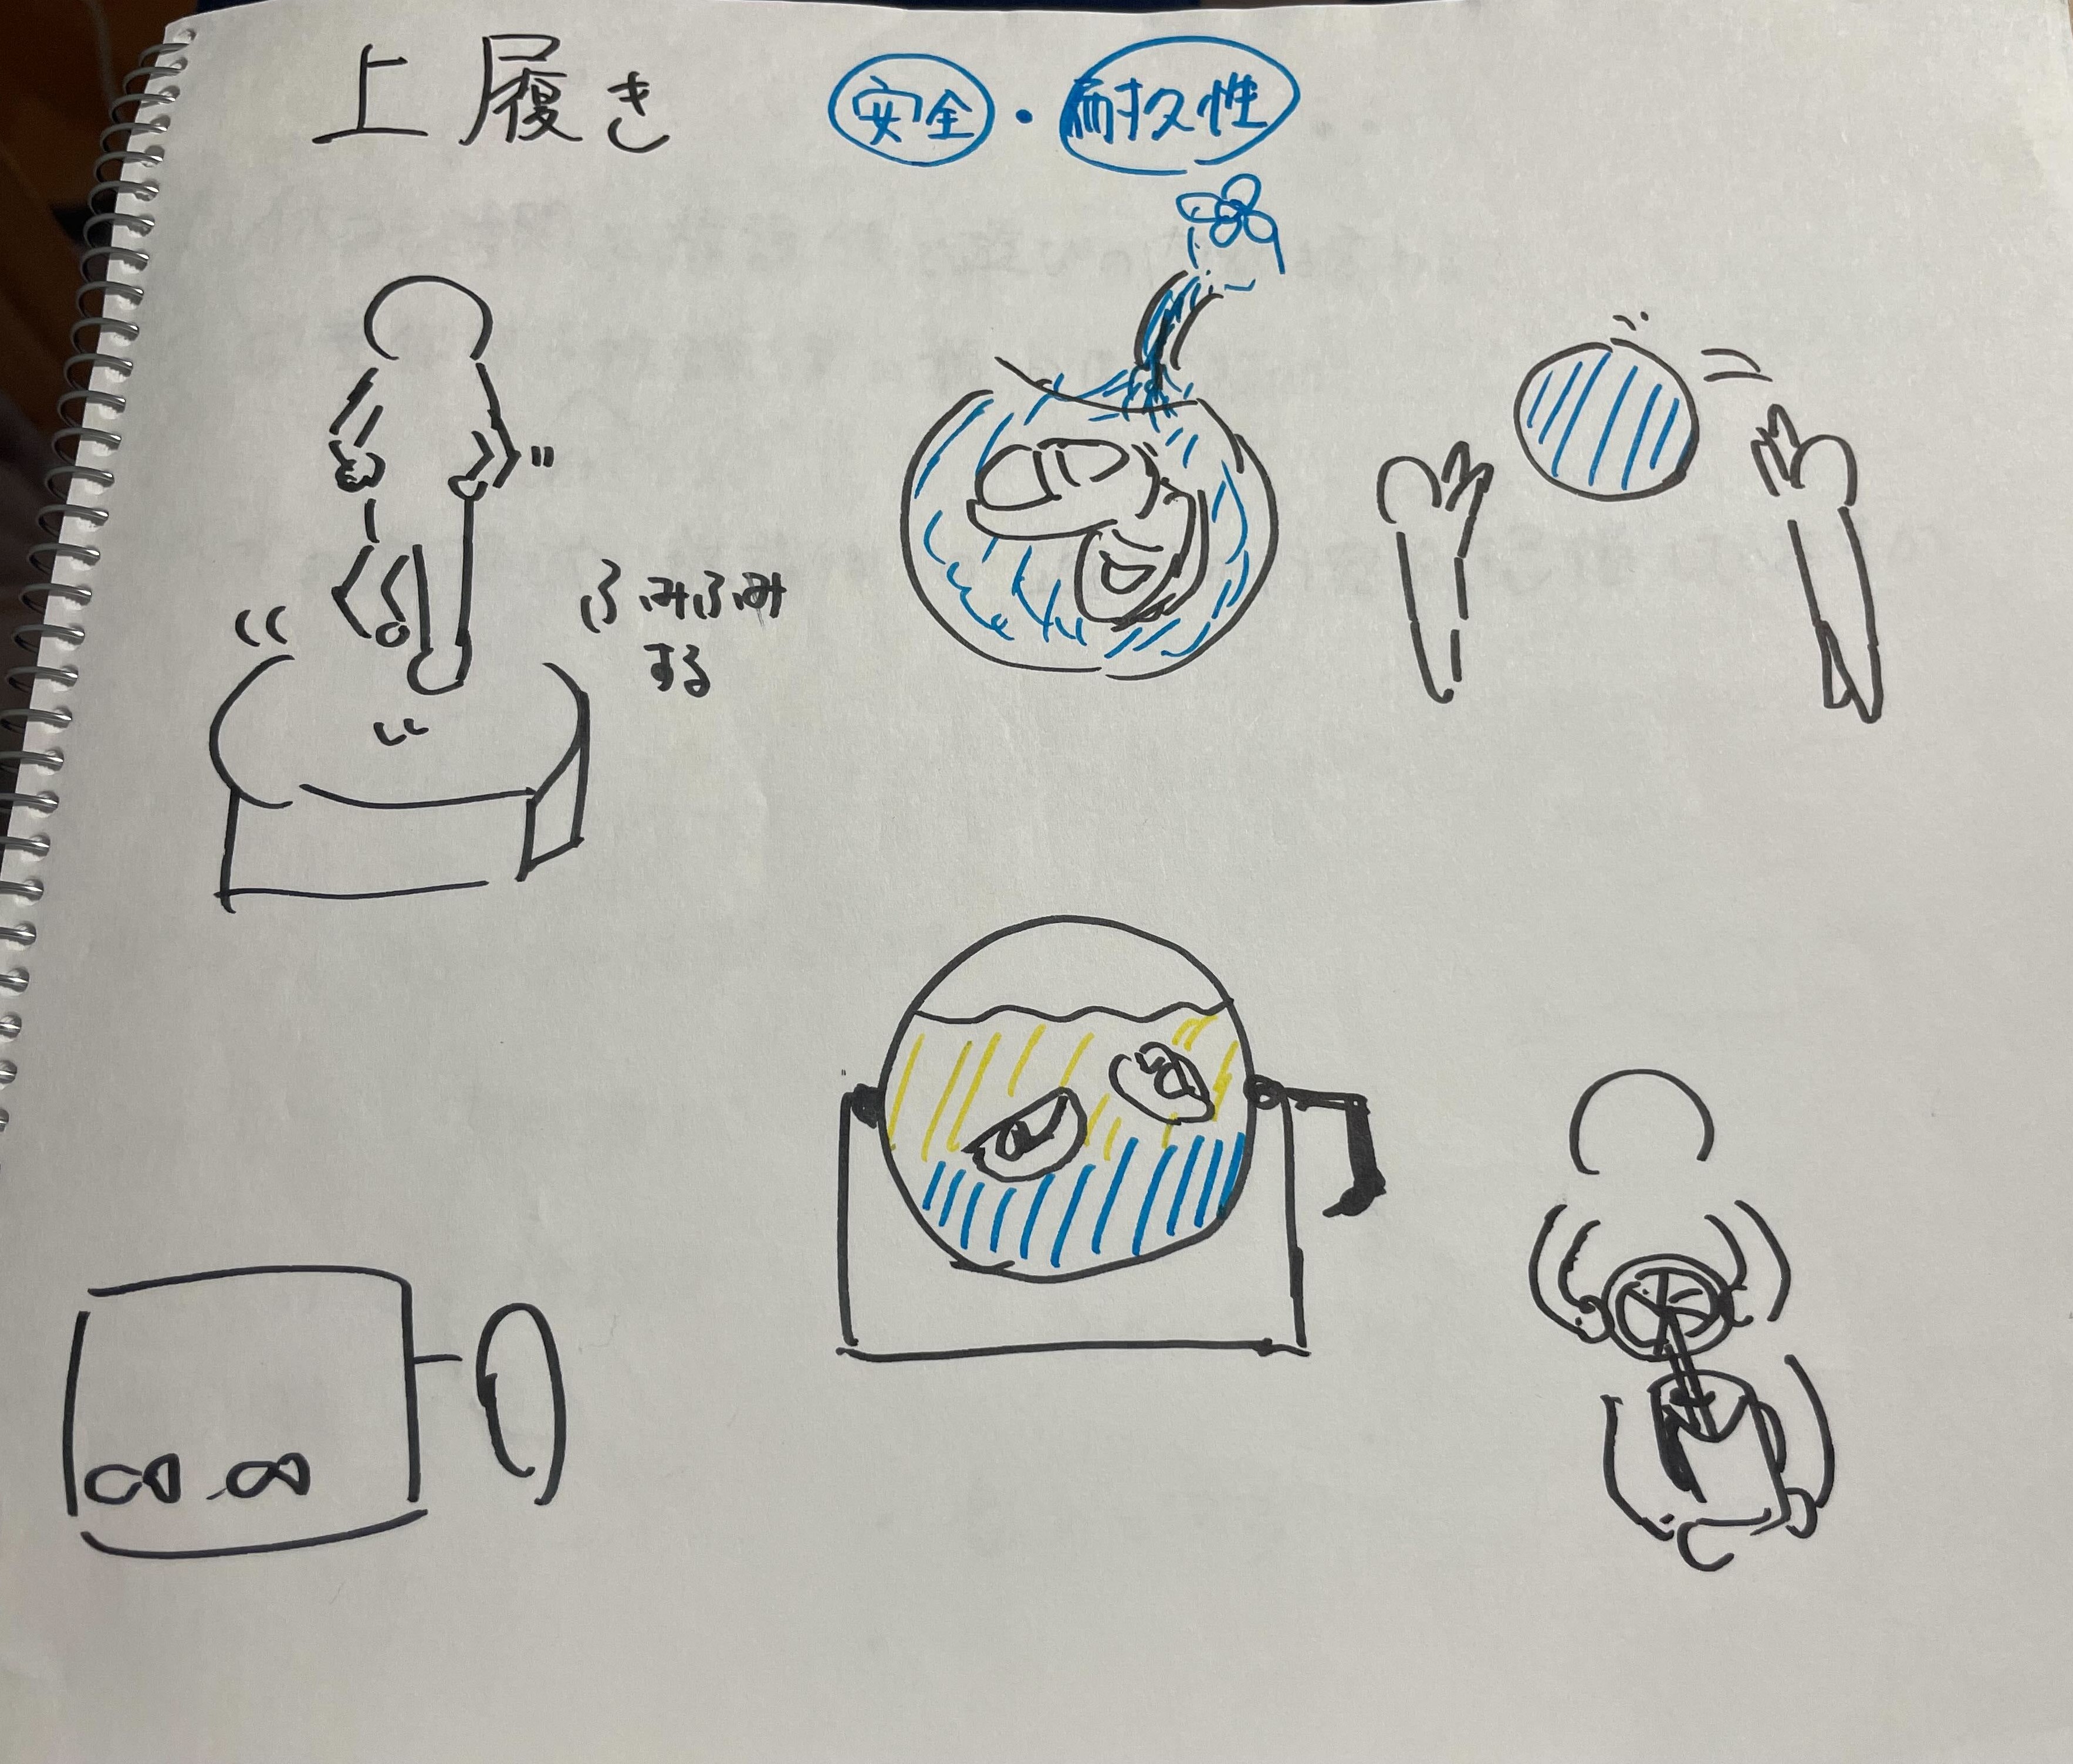 上履き 安全・耐久性
ふみふみ
する